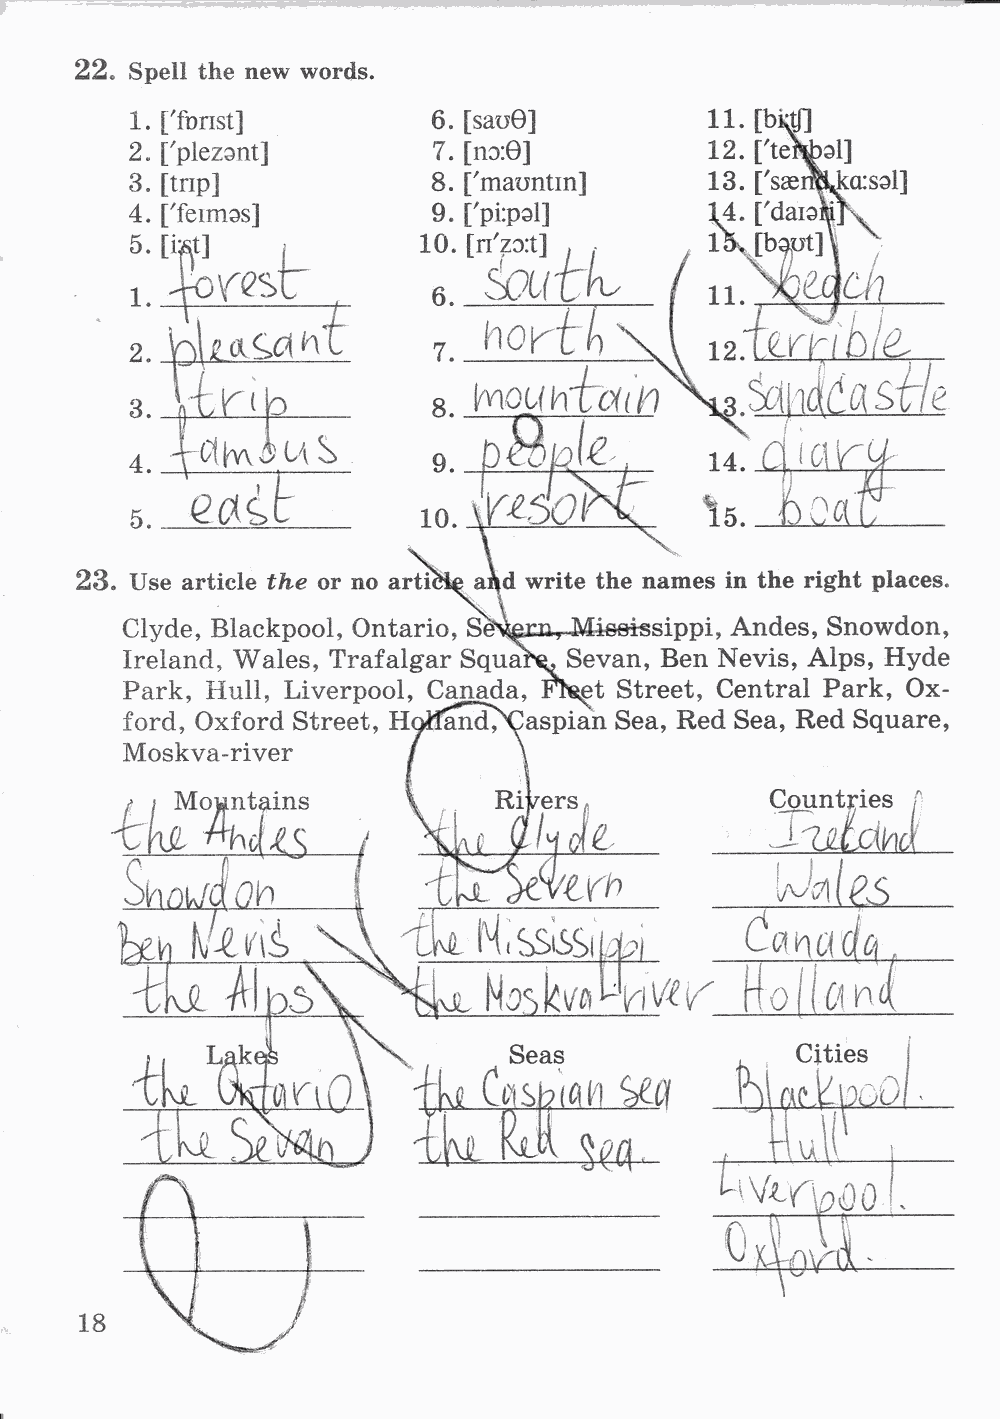 22. Spell the new words.
1. [ʹfɒrɪst] 6. [saʊθ] 11. [bi:tʃ]
2. [ʹplezənt] 7. [nɔ:θ] 12. [ʹterɪbəl]
3. [trɪp] 8. [ʹmaʊntɪn] 13. [ʹsænd,kɑ:səl]
4. [ʹfeɪməs] 9. [ʹpi:pəl] 14. [ʹdaɪəri]
5. [i:st] 10. [rɪʹzɔ:t] 15. [bəʊt]
1. forest 6. south 11. beach
2. pleasant 7. north 12. terrible
3. trip 8. mountain 13. sandcastle
4. famous 9. people 14. diary
5. east 10. resort 15. boat
23. Use article the or no article and write the names in the right places.
Clyde, Blackpool, Ontario, Severn, Mississippi, Andes, Snowdon,
Ireland, Wales, Trafalgar Square, Sevan, Ben Nevis, Alps, Hyde
Park, Hull, Liverpool, Canada, Fleet Street, Central Park, Ox-
ford, Oxford Street, Holland, Caspian Sea, Red Sea, Red Square,
Moskva-river
Mountains Rivers Countries
the Andes the Clyde Ireland
Snowdon the Severn Wales
Ben Nevis the Mississippi Canada
the Alps the Moskva-river Holland
Lakes Seas Cities
the Ontario the Caspian sea Blackpool.
the Sevan the Red sea. Hull
Liverpool.
Oxford.
18